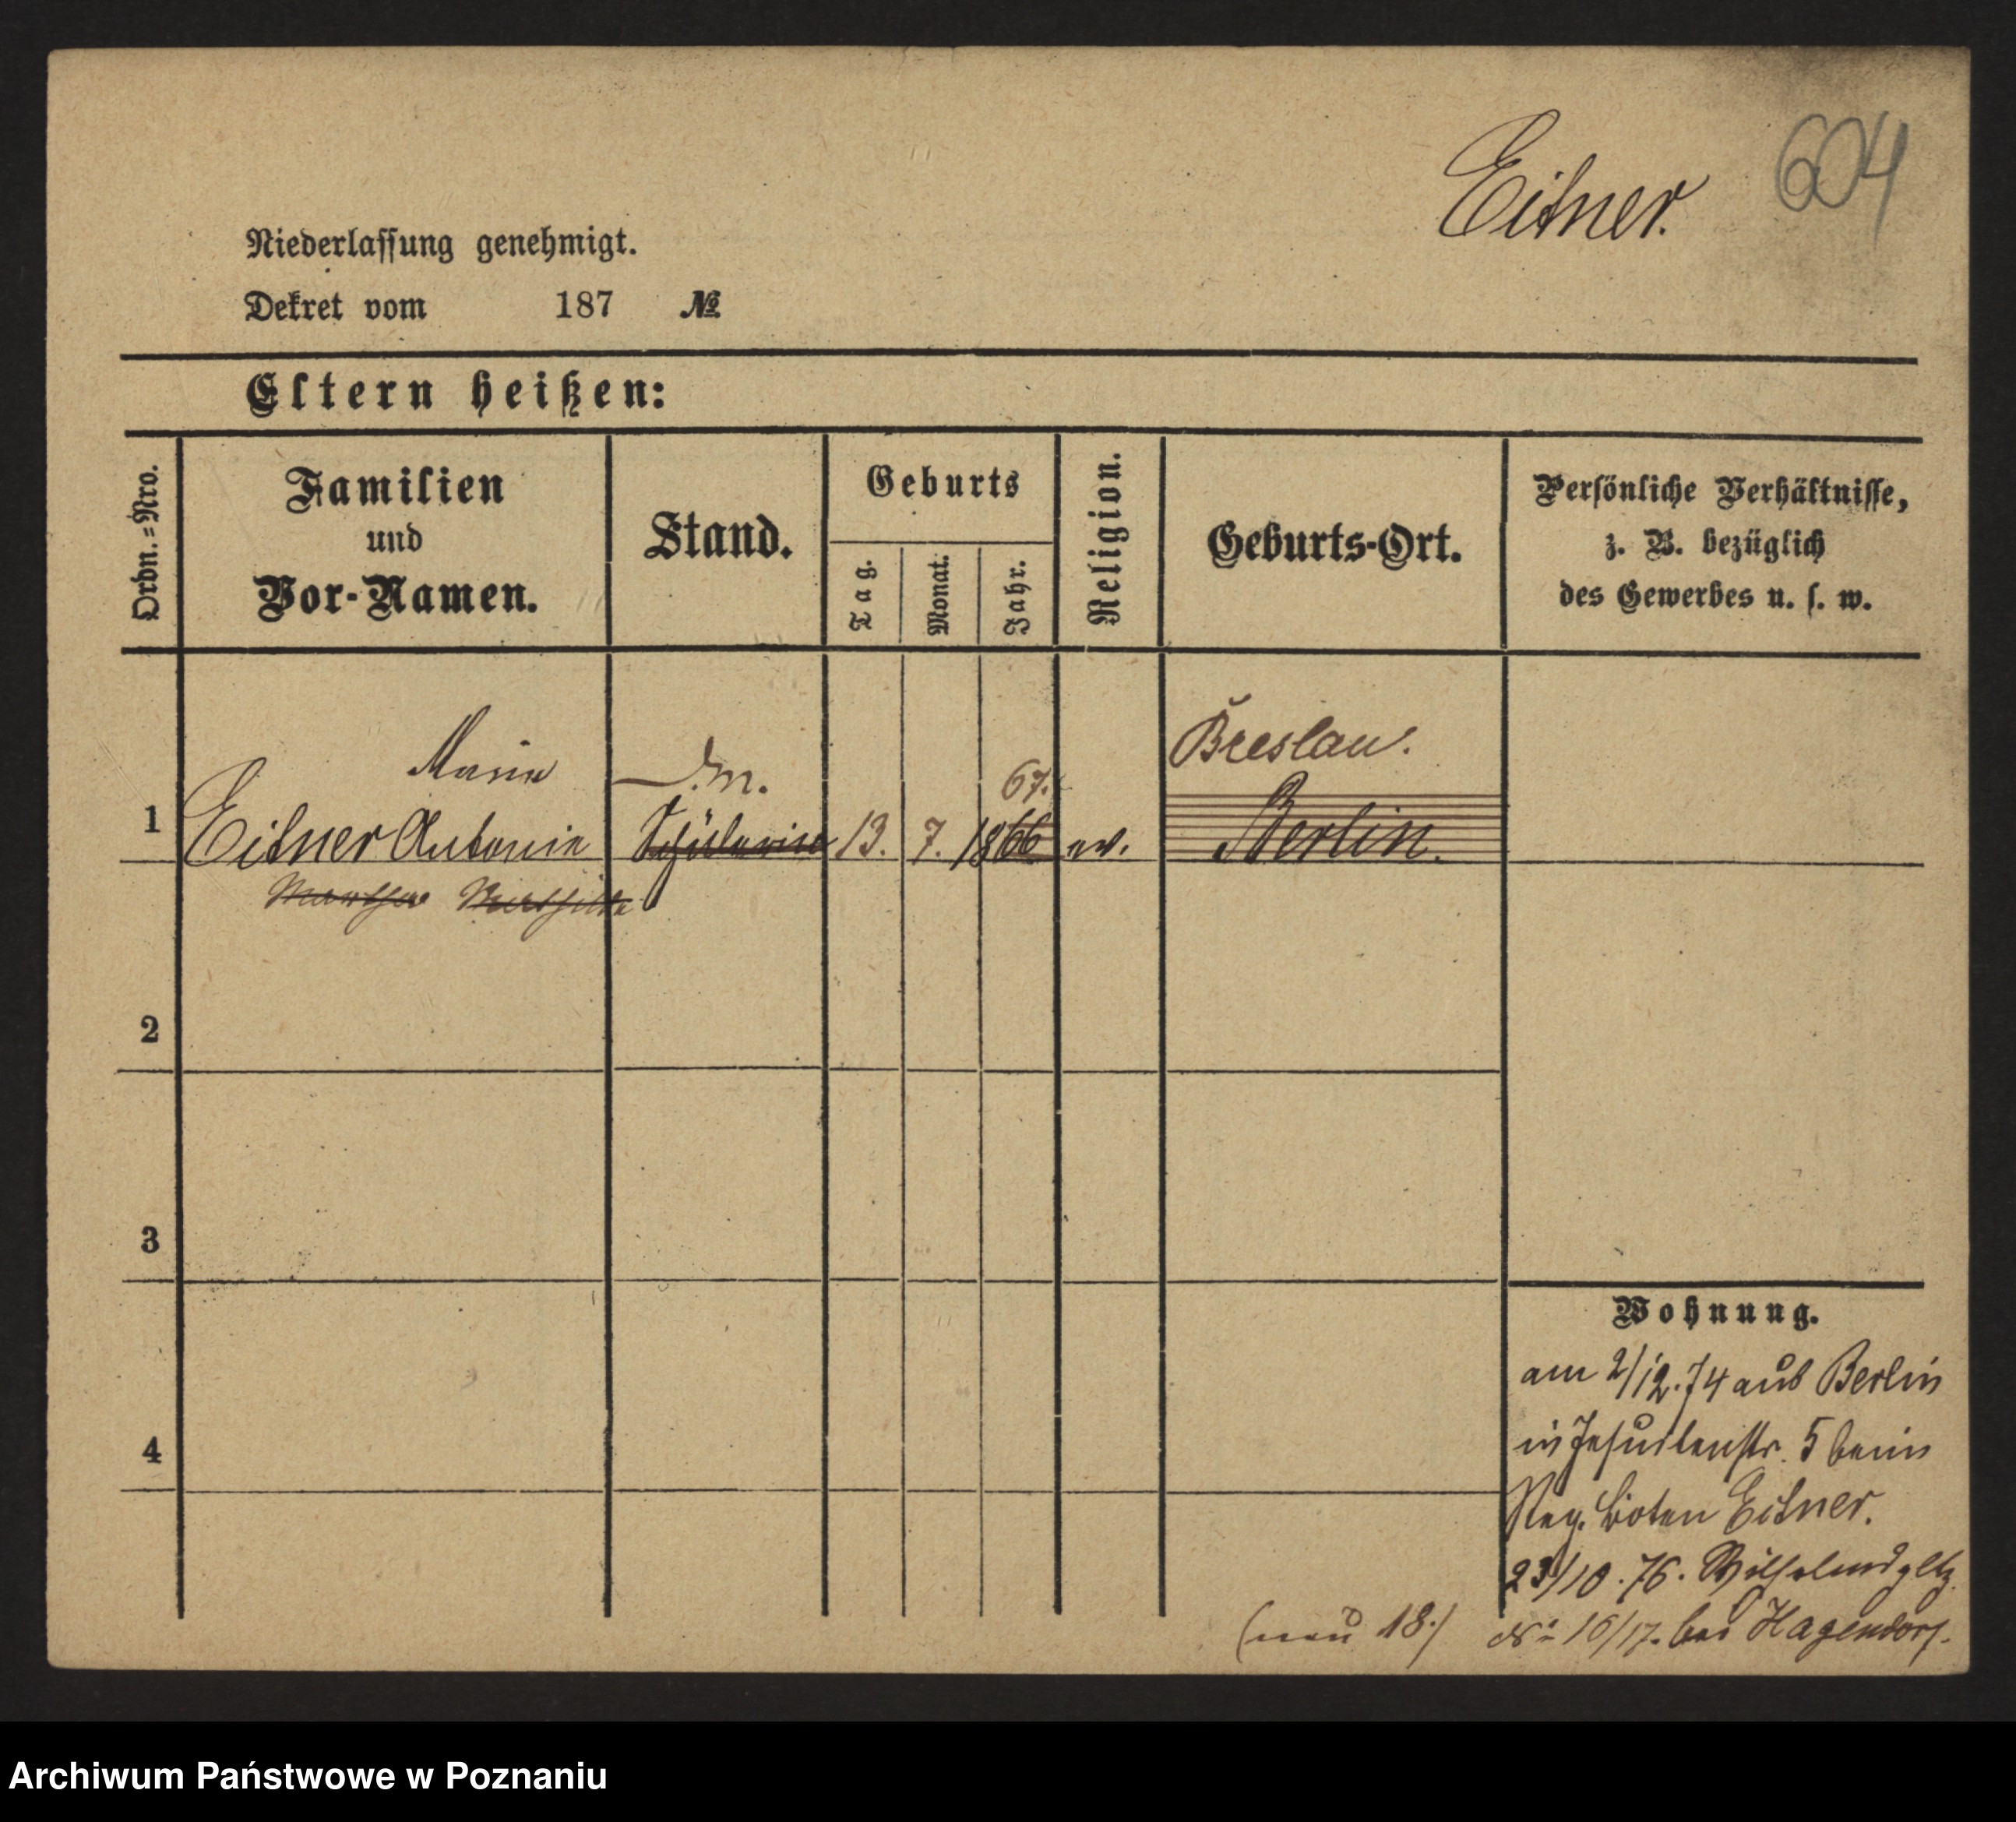 Eitner.
604
Niederlassung genehmigt.
Dekret vom 187 №
Eltern heißen:
Ordn.=Nro.
Familien
und
Vor-Namen.
Stand.
Geburts
Tag.
Monat.
Jahr.
Religion.
Geburts-Ort.
Persönliche Verhältnisse,
z. B. bezüglich
des Gewerbes u. s. w.
Maria
67.
Breslau.
1 Eitner Antonie Schülerin 13. 7. 1866 ev. Berlin.
Martha Mathilde
2
3
4
Wohnung.
am 2/12.74 aus Berlin
in Jesuitenstr. 5 beim
Reg. Boten Eitner.
23/10.76. Wilhelmspltz.
(neu 18.) No 16/17. bei Hagendorf.
Archiwum Państwowe w Poznaniu